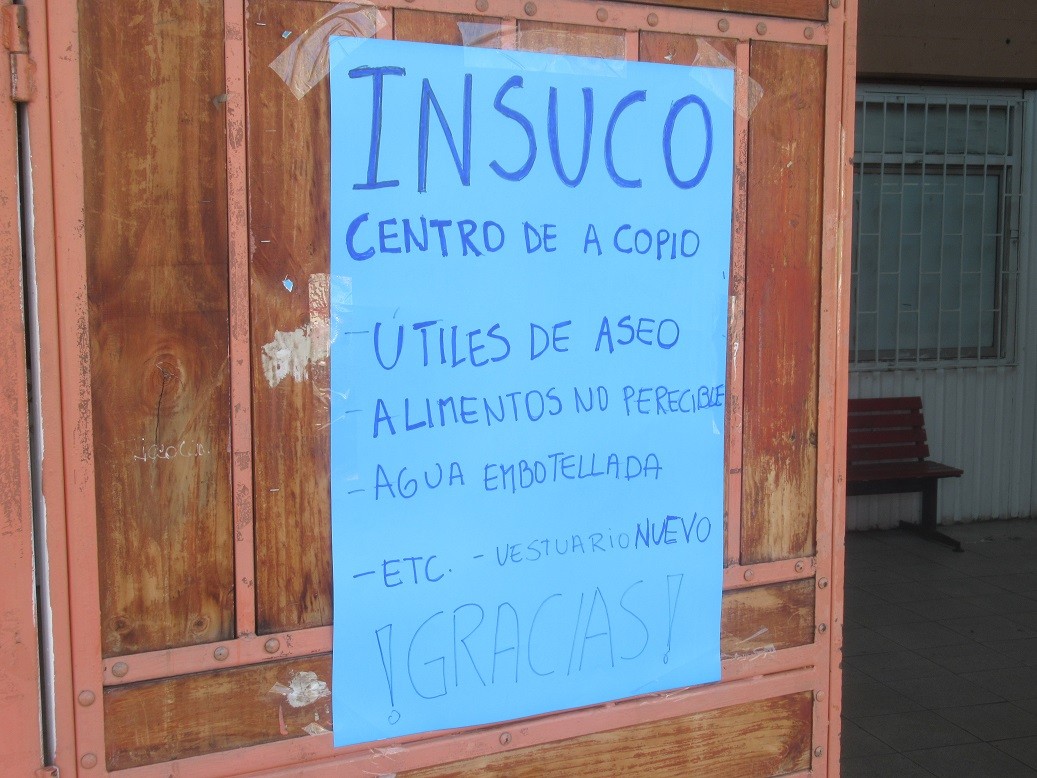 INSUCO
CENTRO DE A COPIO
- ÚTILES DE ASEO
- ALIMENTOS NO PERECIBLE
- AGUA EMBOTELLADA
- ETC. - VESTUARIO NUEVO
¡GRACIAS!